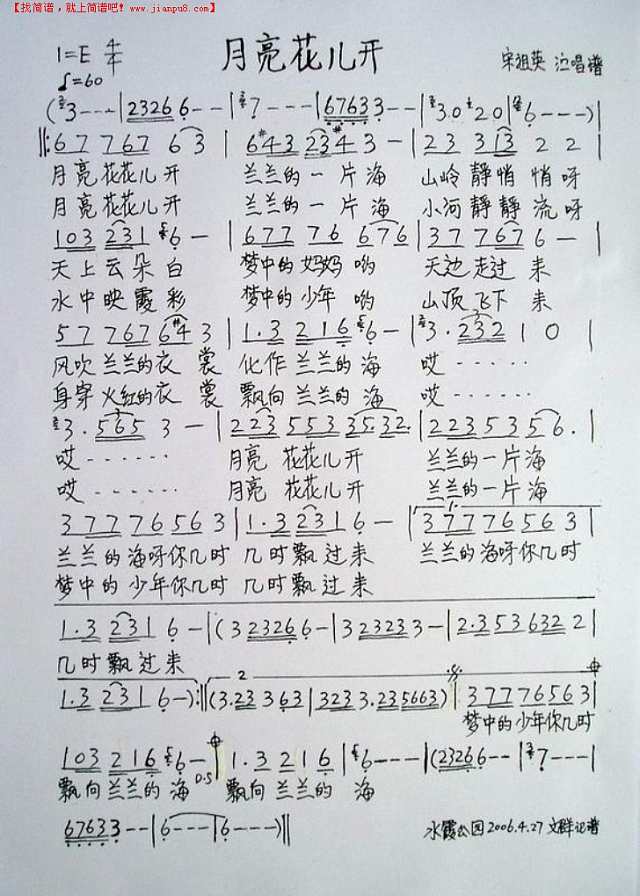 【找简谱，就上简谱吧! www.jianpu8.com】
1=E 4/4
月亮花儿开
♩=60
宋祖英 泣唱谱
(3---|23266---|7---|676333---|3.0 20|6---)|
‖:67 7767 63|6#43 23#43-|23 313 22|
月亮花花儿开 兰兰的一片海 山岭静悄悄呀
月亮花花儿开 兰兰的一片海 小河静静流呀
103 2316-|677 76 676|37 7767 6-|
天上云朵白 梦中的妈妈哟 天边走过来
水中映霞彩 梦中的少年哟 山顶飞下来
57 7767 6#43|1.3 2166-|3.2321 0|
风吹兰兰的衣裳 化作兰兰的海 哎······
身穿火红的衣裳 飘向兰兰的海 哎······
3.5653-|223 553 35.32.|2235356.|
哎······ 月亮花花儿开 兰兰的一片海
哎······ 月亮花花儿开 兰兰的一片海
377765633|1.3 2316-|377765633|
兰兰的海呀你几时 几时飘过来 兰兰的海呀你几时
梦中的少年你几时 几时飘过来
1.3 2316-|(3 23266-|3 23233-|2.3 53 6322|
几时飘过来
1.3 2316-):‖(3.23363|3233.235663)|377765633|
2
梦中的少年你几时
103 2166-|1.3 216|6---|(23266--|7---|
D.S
飘向兰兰的海 飘向兰兰的海
67633--|6---|6---)‖
水霞公园2006.4.27 文群记谱